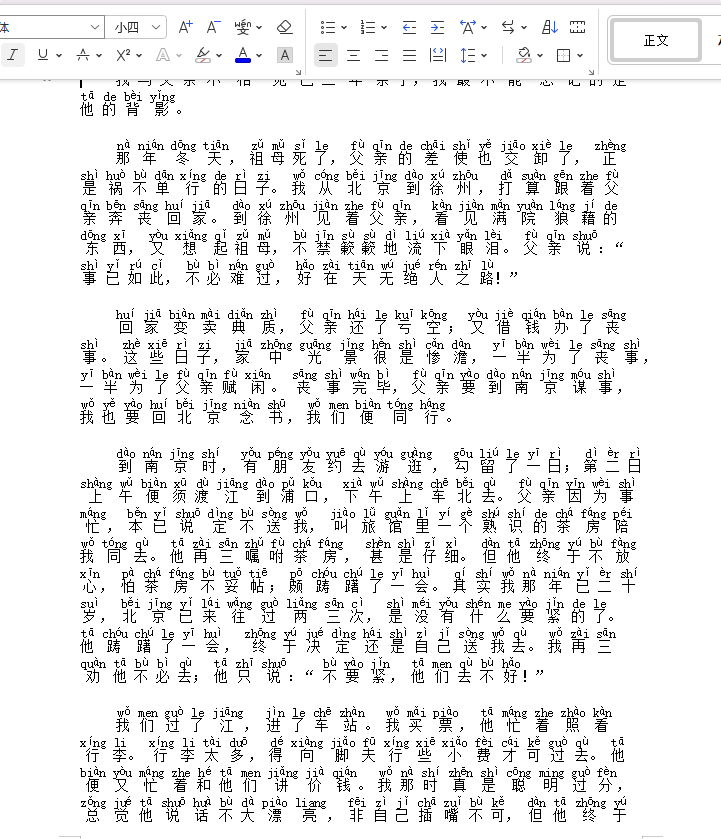 体 小四
正文
我与父亲不相见已二年余了，我最不能忘记的是
tā de bèi yǐng
他的背影。
nà nián dōng tiān zǔ mǔ sǐ le fù qīn de chāi shǐ yě jiāo xiè le zhèng
那年冬天，祖母死了，父亲的差使也交卸了，正
shì huò bù dān xíng de rì zi wǒ cóng běi jīng dào xú zhōu dǎ suàn gēn zhe fù
是祸不单行的日子。我从北京到徐州，打算跟着父
qīn bēn sāng huí jiā dào xú zhōu jiàn zhe fù qīn kàn jiàn mǎn yuàn láng jí de
亲奔丧回家。到徐州见着父亲，看见满院狼藉的
dōng xi yòu xiǎng qǐ zǔ mǔ bù jīn sù sù dì liú xià yǎn lèi fù qīn shuō
东西，又想起祖母，不禁簌簌地流下眼泪。父亲说：“
shì yǐ rú cǐ bù bì nán guò hǎo zài tiān wú jué rén zhī lù
事已如此，不必难过，好在天无绝人之路！”
huí jiā biàn mài diǎn zhì fù qīn hái le kuī kōng yòu jiè qián bàn le sāng
回家变卖典质，父亲还了亏空；又借钱办了丧
shì zhè xiē rì zi jiā zhōng guāng jǐng hěn shì cǎn dàn yī bàn wèi le sāng shì
事。这些日子，家中光景很是惨澹，一半为了丧事，
yī bàn wèi le fù qīn fù xián sāng shì wán bì fù qīn yào dào nán jīng móu shì
一半为了父亲赋闲。丧事完毕，父亲要到南京谋事，
wǒ yě yào huí běi jīng niàn shū wǒ men biàn tóng háng
我也要回北京念书，我们便同行。
dào nán jīng shí yǒu péng yǒu yuē qù yóu guàng gōu liú le yī rì dì èr rì
到南京时，有朋友约去游逛，勾留了一日；第二日
shàng wǔ biàn xū dù jiāng dào pǔ kǒu xià wǔ shàng chē běi qù fù qīn yīn wèi shì
上午便须渡江到浦口，下午上车北去。父亲因为事
máng běn yǐ shuō dìng bù sòng wǒ jiào lǚ guǎn lǐ yí gè shú shí de chá fáng péi
忙，本已说定不送我，叫旅馆里一个熟识的茶房陪
wǒ tóng qù tā zài sān zhǔ fù chá fáng shèn shì zǐ xì dàn tā zhōng yú bù fàng
我同去。他再三嘱咐茶房，甚是仔细。但他终于不放
xīn pà chá fáng bù tuǒ tiē pō chóu chú le yī huì qí shí wǒ nà nián yǐ èr shí
心，怕茶房不妥帖；颇踌躇了一会。其实我那年已二十
suì běi jīng yǐ lái wǎng guò liǎng sān cì shì méi yǒu shén me yào jǐn de le
岁，北京已来往过两三次，是没有什么要紧的了。
tā chóu chú le yī huì zhōng yú jué dìng hái shì zì jǐ sòng wǒ qù wǒ zài sān
他踌躇了一会，终于决定还是自己送我去。我再三
quàn tā bù bì qù tā zhǐ shuō bù yào jǐn tā men qù bù hǎo
劝他不必去；他只说：“不要紧，他们去不好！”
wǒ men guò le jiāng jìn le chē zhàn wǒ mǎi piào tā máng zhe zhào kàn
我们过了江，进了车站。我买票，他忙着照看
xíng li xíng li tài duō dé xiàng jiǎo fū xíng xiē xiǎo fèi cái kě guò qù tā
行李。行李太多，得向脚夫行些小费才可过去。他
biàn yòu máng zhe hé tā men jiǎng jià qián wǒ nà shí zhēn shì cōng míng guò fèn
便又忙着和他们讲价钱。我那时真是聪明过分，
zǒng jué tā shuō huà bù dà piào liang fēi zì jǐ chā zuǐ bù kě dàn tā zhōng yú
总觉他说话不大漂亮，非自己插嘴不可，但他终于